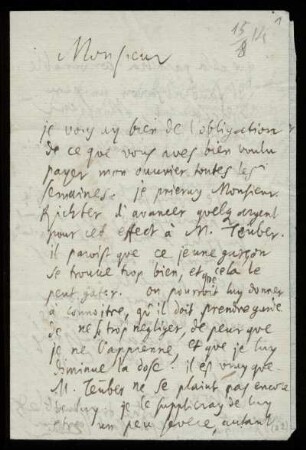 Monsieur
je vous ay bien de l'obligation
de ce que vous aves bien voulu
payer mon ouvrier toutes les
semaines. je prieray Monsieur
Richter d'avancer quelq argent
pour cet effect à M. Teuber.
il paroist que ce jeune garçon
se trouve trop bien, et que cela le
peut gater. on pourroit luy donner
à connoitre, qu'il doit prendre garde
de ne se trop negliger, de peur que
je ne l'apprenne, et que je luy
diminue la dose. il est vray que
M. Teuber ne se plaint pas encore
de luy je le supplieray de luy
estre un peu severe, autant